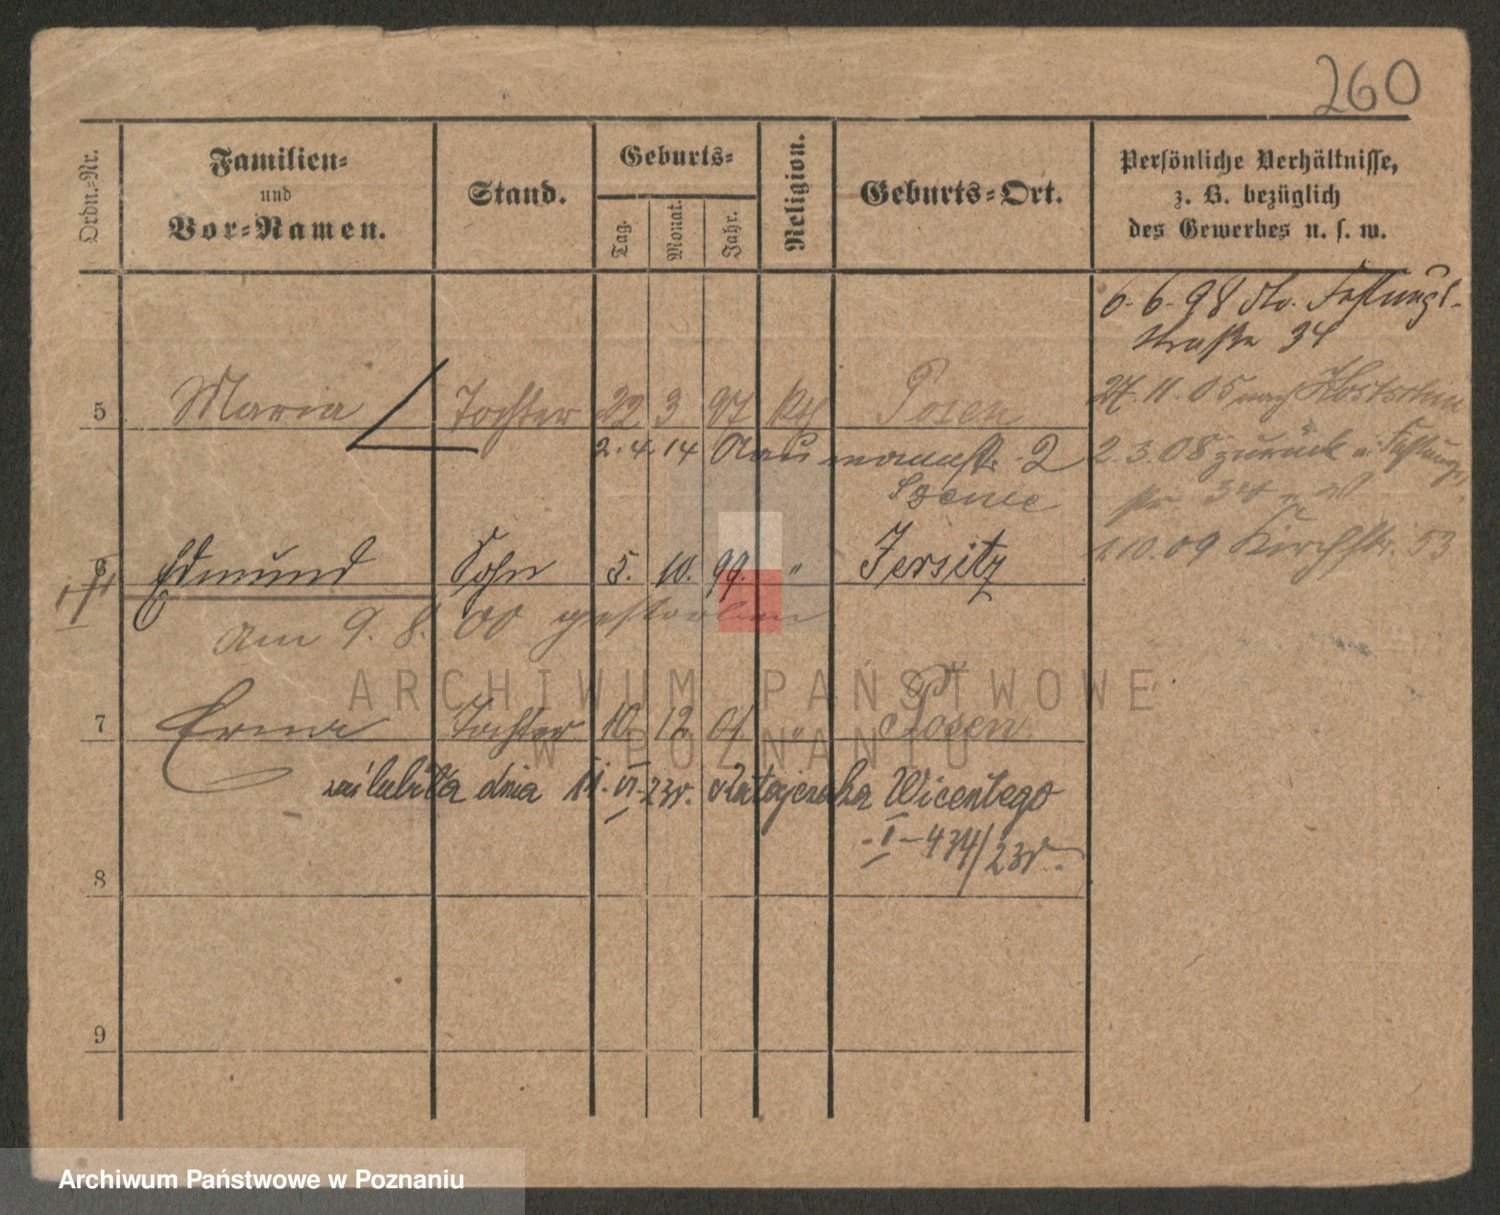 260
Ordn.-Nr.
Familien-
und
Vor-Namen.
Stand.
Geburts-
Tag.
Monat.
Jahr.
Religion.
Geburts-Ort.
Persönliche Verhältnisse,
z. B. bezüglich
des Gewerbes u. s. w.
6. 6. 98 Festungs-
straße 34
5 Maria Tochter 22 3 97 kth Posen
27. 11. 05 nach
2. 4. 14 Naumannstr. 2
2. 3. 08 zurück Festungs
str. 34
6 Edmund Sohn 5. 10. 99. " Jersitz
1 10. 09 Kirchstr. 53
am 9. 8. 00 gestorben
ARCHIWUM PAŃSTWOWE
W POZNANIU
7 Erna Tochter 10. 12. 01. " Posen
zaślubiła dnia 11. VI. 23r. Ratajczaka Wicentego
- I - 434/23r.
8
9
Archiwum Państwowe w Poznaniu